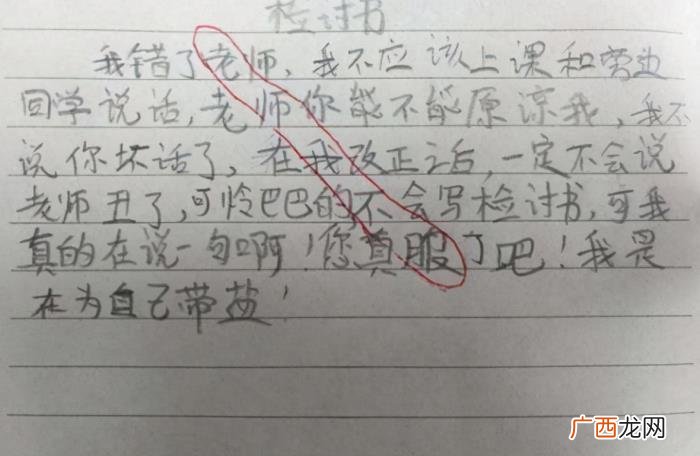 检讨书
我错了老师，我不应该上课和旁边
同学说话，老师你能不能原谅我，我不
说你坏话了，在我改正之后，一定不会说
老师丑了，可怜巴巴的不会写检讨书，可我
真的在说一句啊！您真服了吧！我是
在为自己带盐！
广西龙网